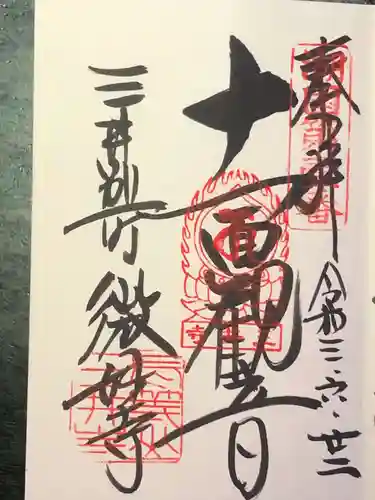 奉拝
令和三.六.廿二
十一面観音
三井別所 微妙寺